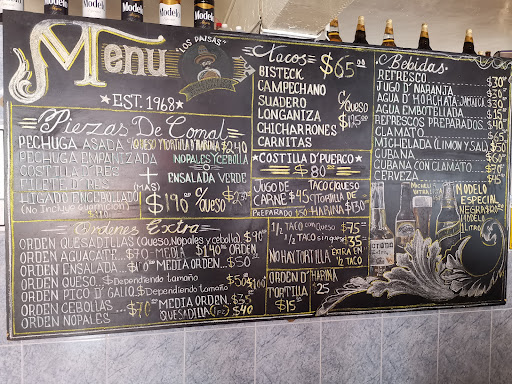 Modelo
Menu
"LOS PAISAS"
EST. 1969
Piezas De Comal
PECHUGA ASADA QUESO Y TORTILLA D'HARINA $240
PECHUGA EMPANIZADA NOPALES Y CEBOLLA
COSTILLA D'RES +
FILETE D'RES ENSALADA VERDE
LIGADO ENCEBOLLADO (MAS) $190 C/ QUESO
(No Incluye guarnición)
Ordenes Extra
ORDEN QUESADILLAS (Queso, Nopales y cebolla) $90
ORDEN AGUACATE...$70 - MEDIA $40
ORDEN ENSALADA MEDIA ORDEN...$50
ORDEN QUESO Dependiendo tamaño
ORDEN PICO D' GALLO Dependiendo tamaño
ORDEN CEBOLLAS...$70 MEDIA ORDEN $35
ORDEN NOPALES QUESADILLA (1 PZ) $40
Tacos $65.00
BISTECK
CAMPECHANO
SUADERO C/QUESO
LONGANIZA $125.00
CHICHARRONES
CARNITAS
COSTILLA D'PUERCO
$80
JUGO DE CARNE $45
PREPARADO $50
TACO C/QUESO
(TORTILLA DE HARINA) $130
1/2 TACO con Queso $75
1/2 TACO sin queso $35
NO HAY TORTILLA EXTRA EN 1/2 TACO
ORDEN D' TORTILLA $15
HARINA 25
Bebidas
REFRESCO $30
JUGO D' NARANJA
AGUA D' HORCHATA Y JAMAICA $30
AGUA EMBOTELLADA
REFRESCOS PREPARADOS $40
CLAMATO $65
MICHELADA (LIMON Y SAL) $50
CUBANA $60
CUBANA CON CLAMATO $70
CERVEZA
MODELO ESPECIAL
NEGRA
MODELO
LITRO
Corona